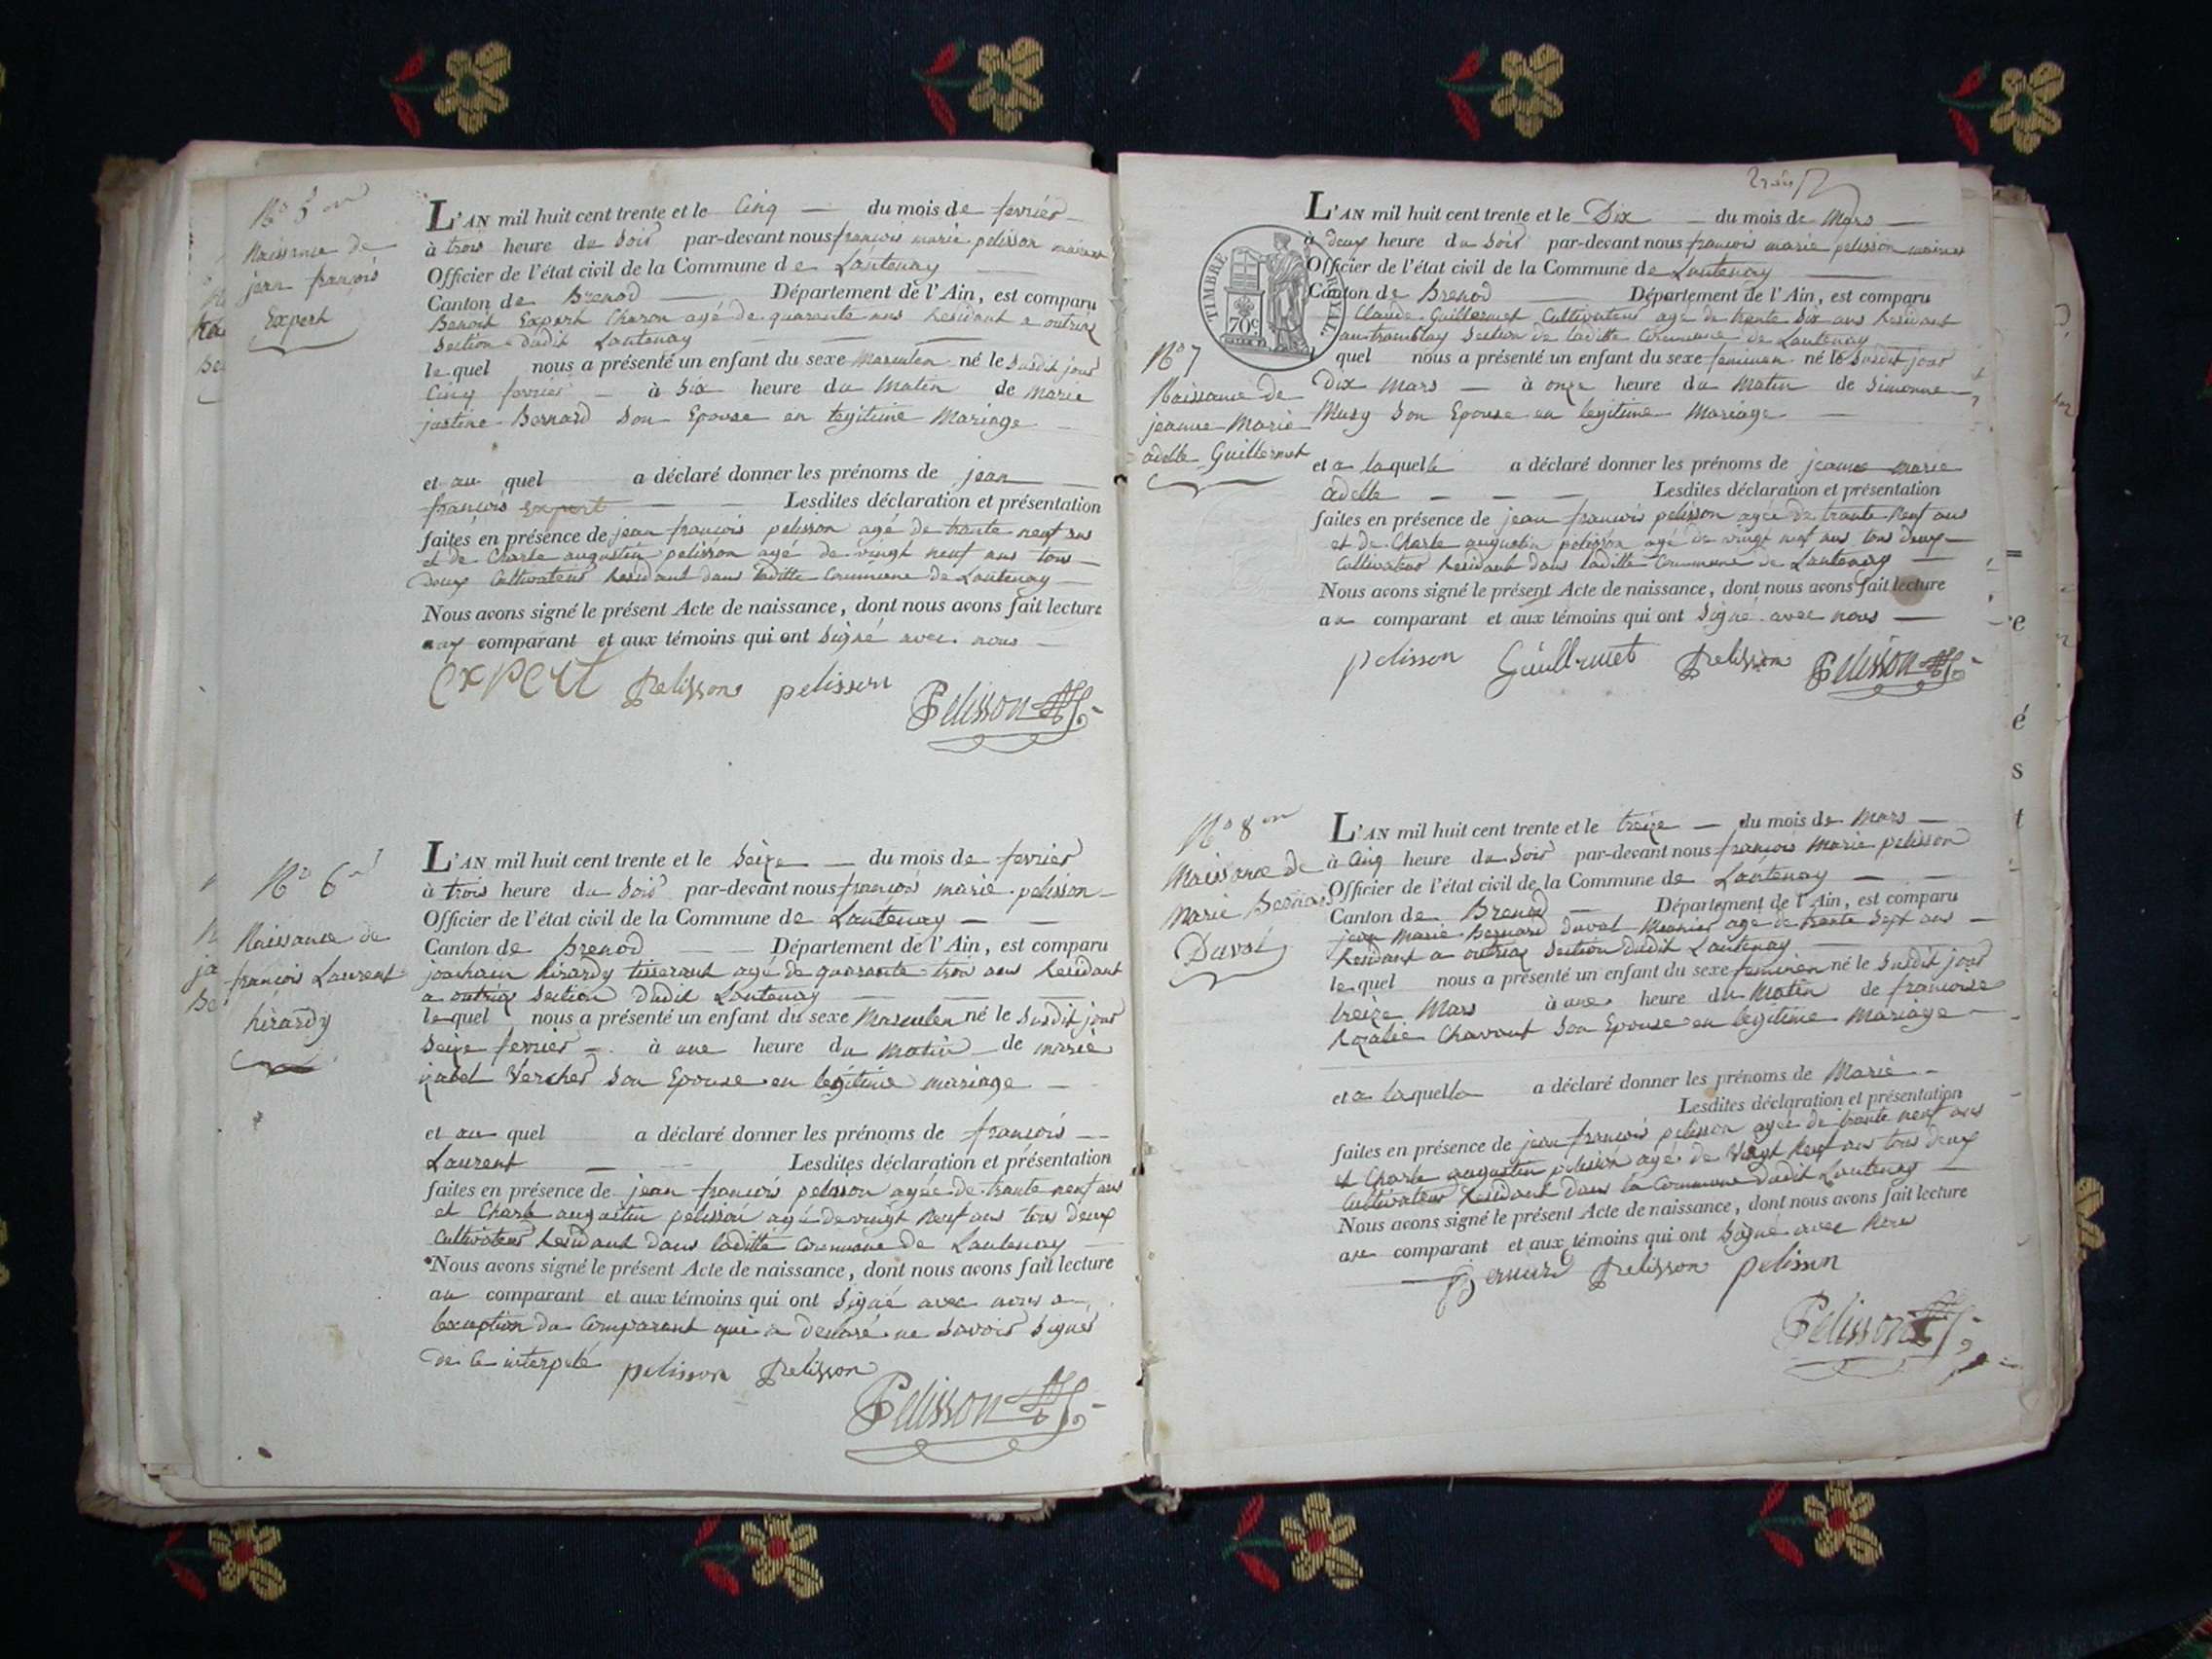 No 5
Naissance de
jean françois
Expert
L'AN mil huit cent trente et le Cinq — du mois de fevrier
à trois heure du Soir par-devant nous françois marie pelisson maire
Officier de l'état civil de la Commune de Lantenay
Canton de Brenod — Département de l'Ain, est comparu
Benoit Expert Charon agé de quarante ans Residant a outriaz
Section dudit Lantenay
lequel nous a présenté un enfant du sexe Masculen né le Susdit jour
Cinq fevrier — à Six heure du Matin de Marie
justine Bernard Son Epouse en legitime Mariage
et au quel a déclaré donner les prénoms de jean
françois Expert — Lesdites déclaration et présentation
faites en présence de jean françois pelisson agé de trante neuf ans
et de Charle augustin pelisson agé de vingt neuf ans tous
deux Cultivateur Residant dans laditte Commune de Lantenay
Nous avons signé le présent Acte de naissance, dont nous avons fait lecture
comparant et aux témoins qui ont Signé avec nous
expert pelisson pelisson
Pelisson
No 6
Naissance de
françois Laurent
hirardy
L'AN mil huit cent trente et le Seize — du mois de fevrier
à trois heure du Soir par-devant nous françois marie pelisson
Officier de l'état civil de la Commune de Lantenay
Canton de Brenod — Département de l'Ain, est comparu
joachain hirardy tisserant agé de quarante trois ans Residant
a outriaz Section Dudit Lantenay
lequel nous a présenté un enfant du sexe Masculen né le Susdit jour
Seize fevrier — à une heure du matin de marie
izabel Vercher Son Epouse en legitime mariage
et au quel a déclaré donner les prénoms de françois
Laurent — Lesdites déclaration et présentation
faites en présence de jean françois pelisson agée de trante neuf ans
et Charle augustin pelisson agé de vingt Neuf ans tous deux
Cultivateur Residant dans laditte Commune de Lantenay
Nous avons signé le présent Acte de naissance, dont nous avons fait lecture
au comparant et aux témoins qui ont Signé avec nous a
lexception du Comparant qui a declaré ne Savoir Signer
de ce interpelé pelisson pelisson
Pelisson
TIMBRE ROYAL
70c
No 7
Naissance de
jeanne Marie
adelle Guillermet
L'AN mil huit cent trente et le Dix — du mois de Mars
à deux heure du Soir par-devant nous françois marie pelisson maire
Officier de l'état civil de la Commune de Lantenay
Canton de Brenod — Département de l'Ain, est comparu
Claude Guillermet Cultivateur agé de trente Six ans Residant
au tramblay Section de laditte Commune de Lantenay
quel nous a présenté un enfant du sexe feminen né le Susdit jour
Dix Mars — à onze heure du Matin de Simonne
Musy Son Epouse en legitime Mariage
et a laquelle a déclaré donner les prénoms de jeanne marie
adelle — Lesdites déclaration et présentation
faites en présence de jean françois pelisson agée de trante Neuf ans
et de Charle augustin pelisson agé de vingt neuf ans tous deux
Cultivateur Residant dans laditte Commune de Lantenay
Nous avons signé le présent Acte de naissance, dont nous avons fait lecture
au comparant et aux témoins qui ont Signé avec nous
pelisson Guillermet pelisson Pelisson
No 8
Naissance de
Marie Bernard
Duval
L'AN mil huit cent trente et le treize — du mois de Mars
à Cinq heure du Soir par-devant nous françois Marie pelisson
Officier de l'état civil de la Commune de Lantenay
Canton de Brenod — Département de l'Ain, est comparu
jean Marie Bernard Duval Meunier agé de trante Sept ans
Residant a outriaz Section Dudit Lantenay
lequel nous a présenté un enfant du sexe feminen né le Susdit jour
treize Mars à une heure du Matin de francoise
Rozalie Chavant Son Epouse en legitime Mariage
et a laquelle a déclaré donner les prénoms de Marie
Lesdites déclaration et présentation
faites en présence de jean françois pelisson agée de trante neuf ans
et Charle augustin pelisson agé de Vingt Neuf ans tous deux
Cultivateur Residant dans la Commune dudit Lantenay
Nous avons signé le présent Acte de naissance, dont nous avons fait lecture
au comparant et aux témoins qui ont Signé avec Nous
Bernard pelisson pelisson
Pelisson